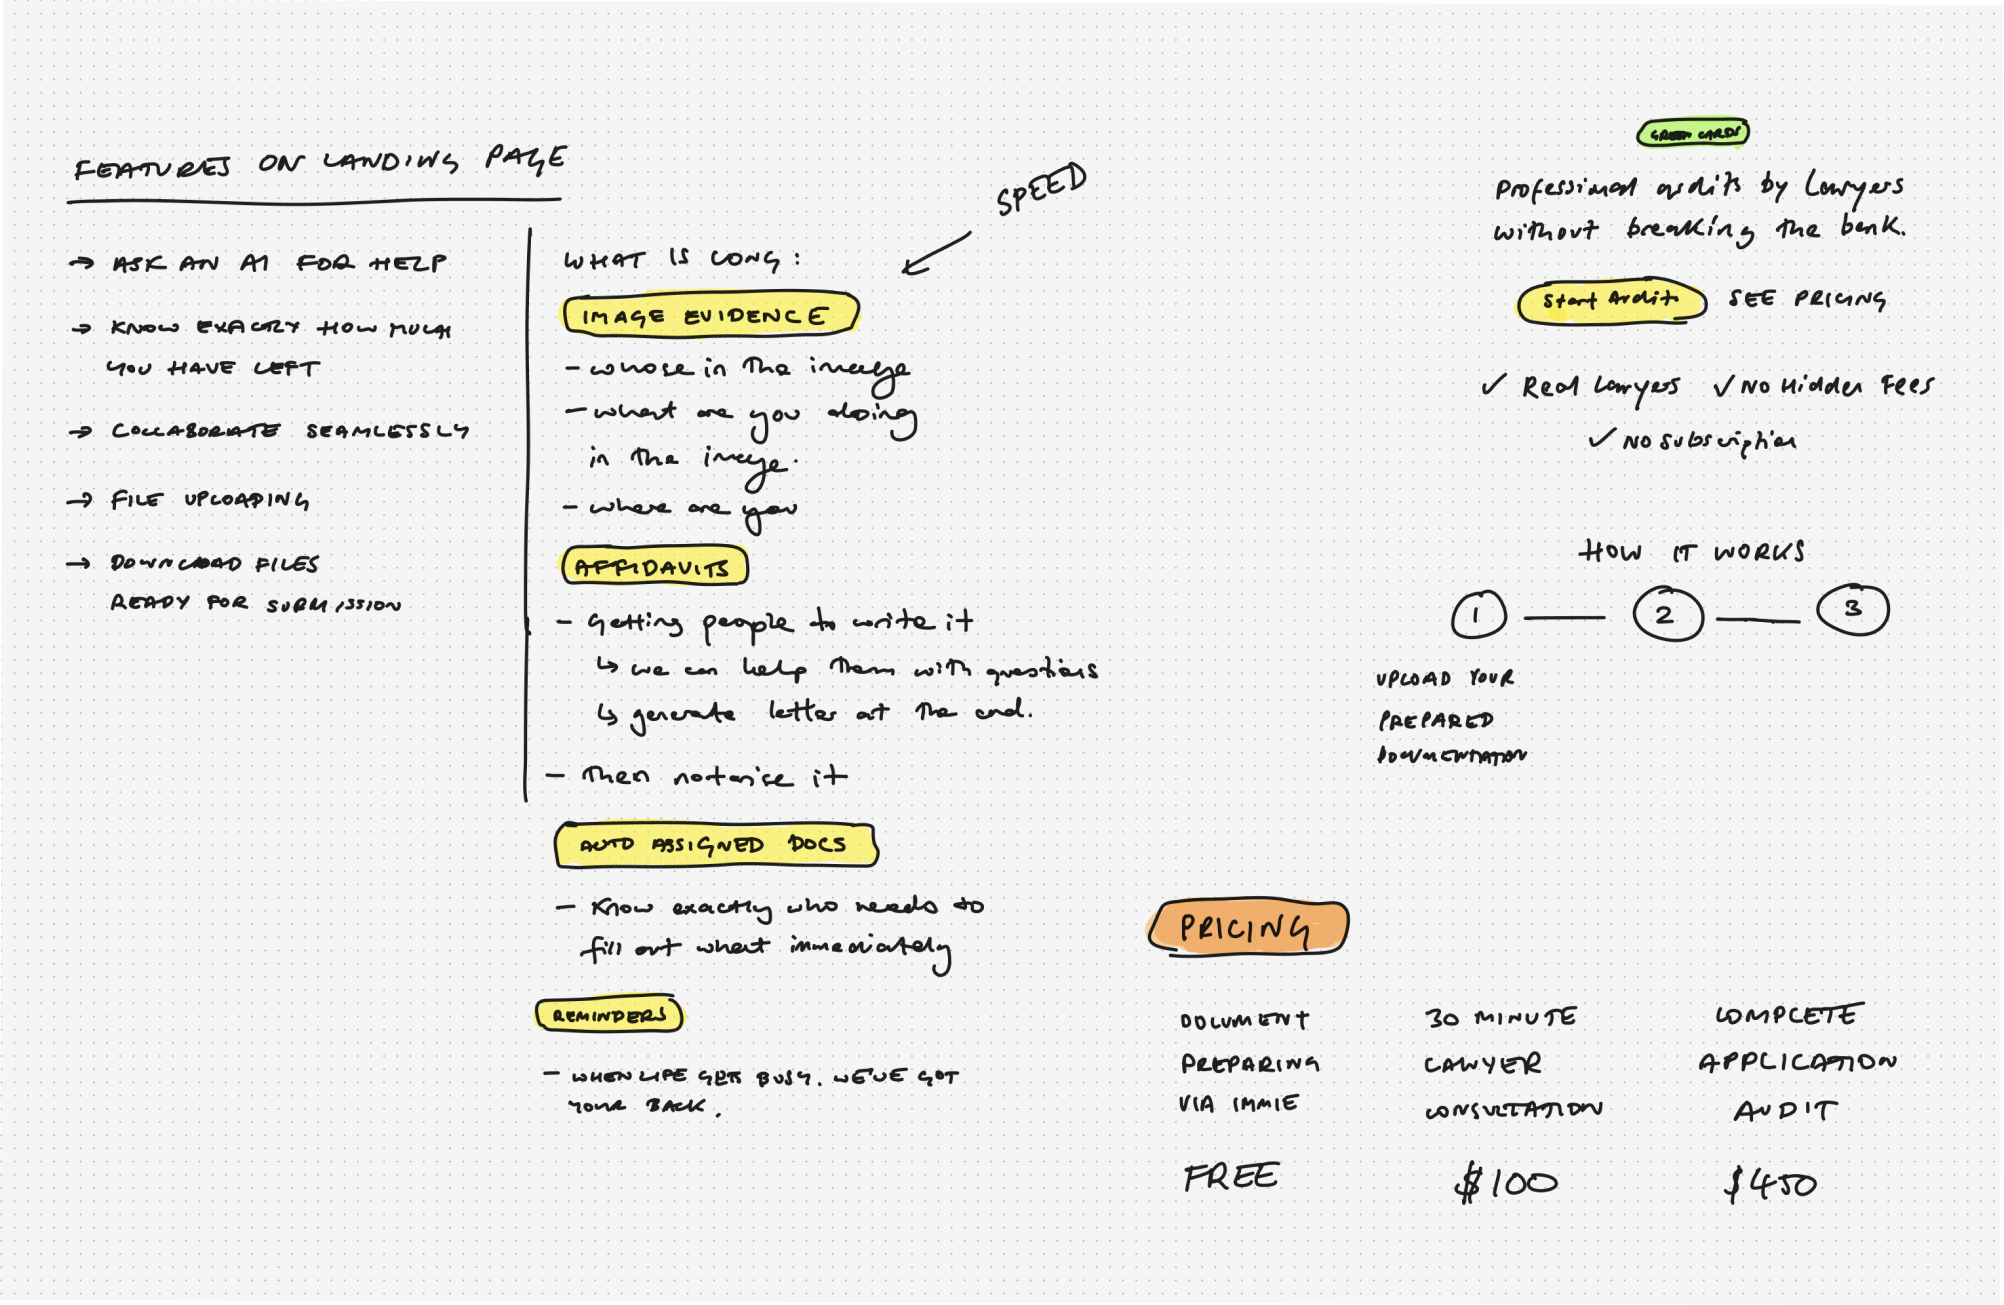 FEATURES ON LANDING PAGE
→ ASK AN AI FOR HELP
→ KNOW EXACTLY HOW MUCH
YOU HAVE LEFT
→ COLLABORIATE SEAMLESSLY
→ FILE UPLOADING
→ DOWNLOAD FILES
READY FOR SUBMISSION
SPEED
WHAT IS LONG:
IMAGE EVIDENCE
- whose in the image
- what are you doing
in the image.
- where are you
AFFIDAVITS
- Getting people to write it
↳ we can help them with questions
↳ generate letter at the end.
- Then notarise it
AUTO ASSIGNED DOCS
- Know exactly who needs to
fill out what immediately
REMINDERS
- WHEN LIFE GETS BUSY. WE'VE GOT
YOUR BACK.
GREEN CARDS
Professional audits by Lawyers
without breaking the bank.
Start Audit SEE PRICING
✓ Real Lawyers ✓ No Hidden Fees
✓ No subscription
HOW IT WORKS
1 — 2 — 3
UPLOAD YOUR
PREPARED
DOCUMENTATION
PRICING
DOCUMENT
PREPARING
VIA IMMIE
FREE
30 MINUTE
LAWYER
CONSULTATION
$100
COMPLETE
APPLICATION
AUDIT
$450